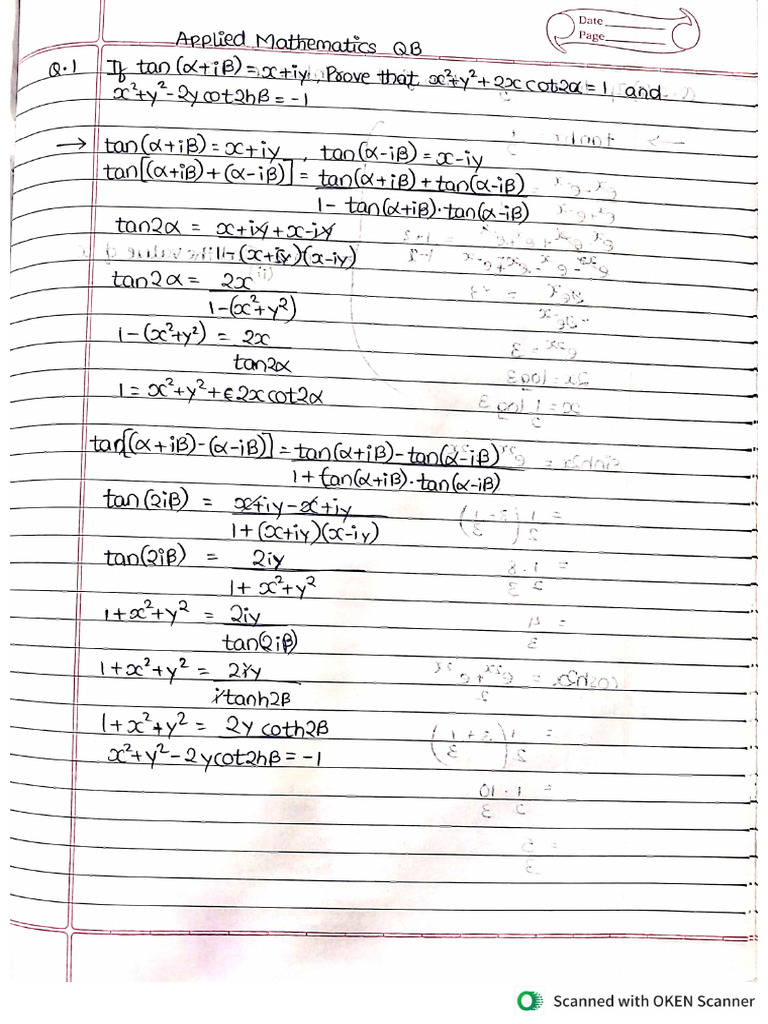 Date
Page
Applied Mathematics QB
Q.1 If tan(α+iβ)=x+iy, Prove that x²+y²+2xcot2α=1 and
x²+y²-2ycot2hβ=-1
→ tan(α+iβ)=x+iy, tan(α-iβ)=x-iy
tan[(α+iβ)+(α-iβ)] = tan(α+iβ)+tan(α-iβ)
1-tan(α+iβ)·tan(α-iβ)
tan2α = x+iy+x-iy
1-(x+iy)(x-iy)
tan2α = 2x
1-(x²+y²)
1-(x²+y²) = 2x
tan2α
1 = x²+y²+2xcot2α
tan[(α+iβ)-(α-iβ)] = tan(α+iβ)-tan(α-iβ)
1+tan(α+iβ)·tan(α-iβ)
tan(2iβ) = x+iy-x+iy
1+(x+iy)(x-iy)
tan(2iβ) = 2iy
1+x²+y²
1+x²+y² = 2iy
tan(2iβ)
1+x²+y² = 2iy
itanh2β
1+x²+y² = 2y coth2β
x²+y²-2ycot2hβ=-1
Scanned with OKEN Scanner